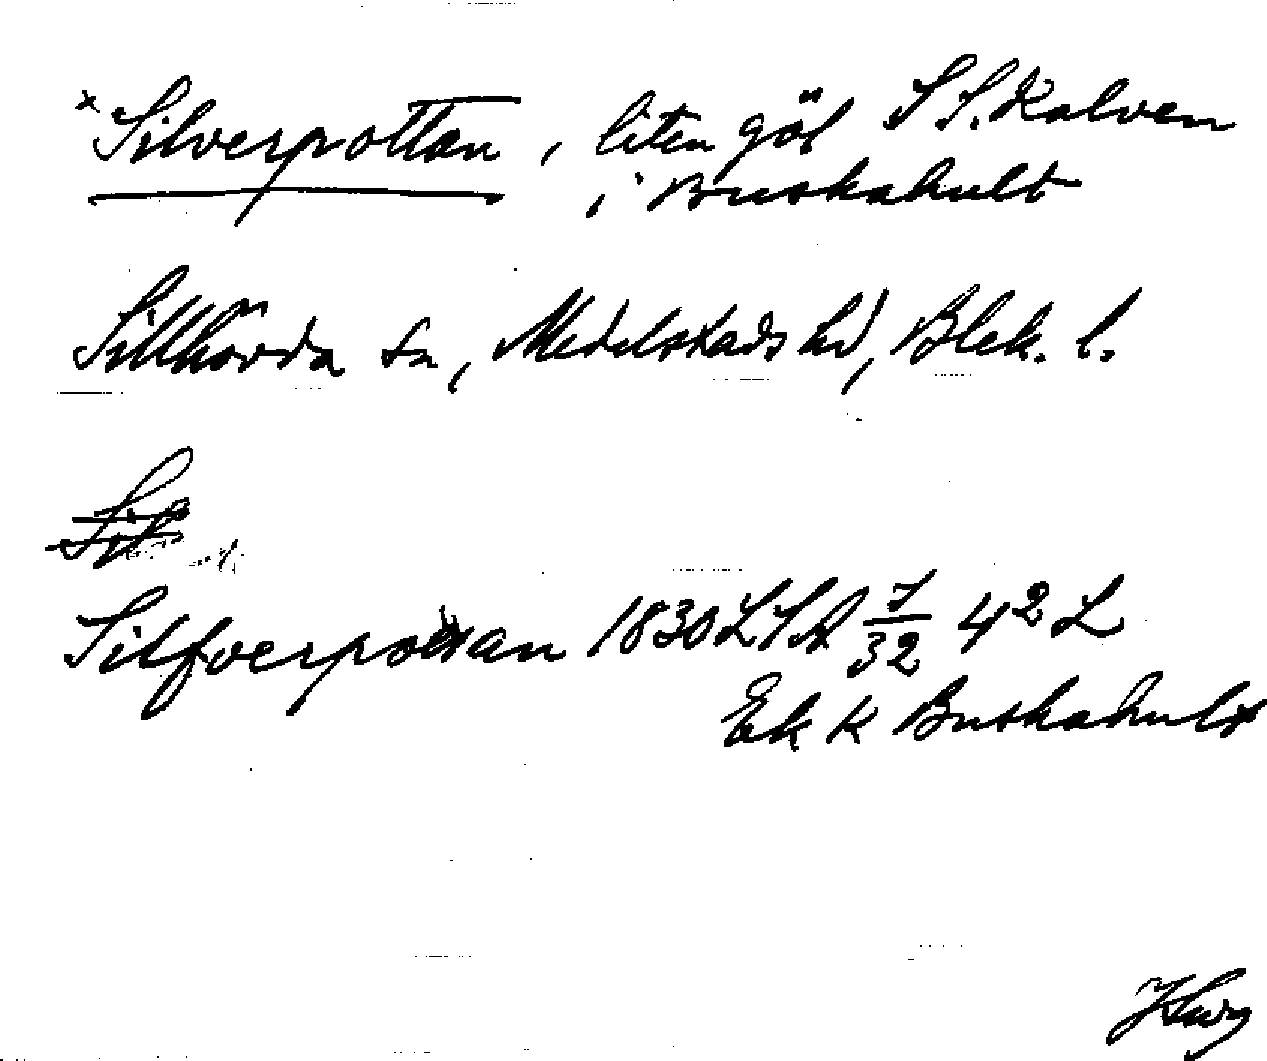 × Silverpottan, liten göl S S. Kalven
i Buskahult
Sillhövda sn, Medelstads hd, Blek. l.
Silf
Silfverpottan 1830 LSA 7/32 4² L
Ek K Buskahult